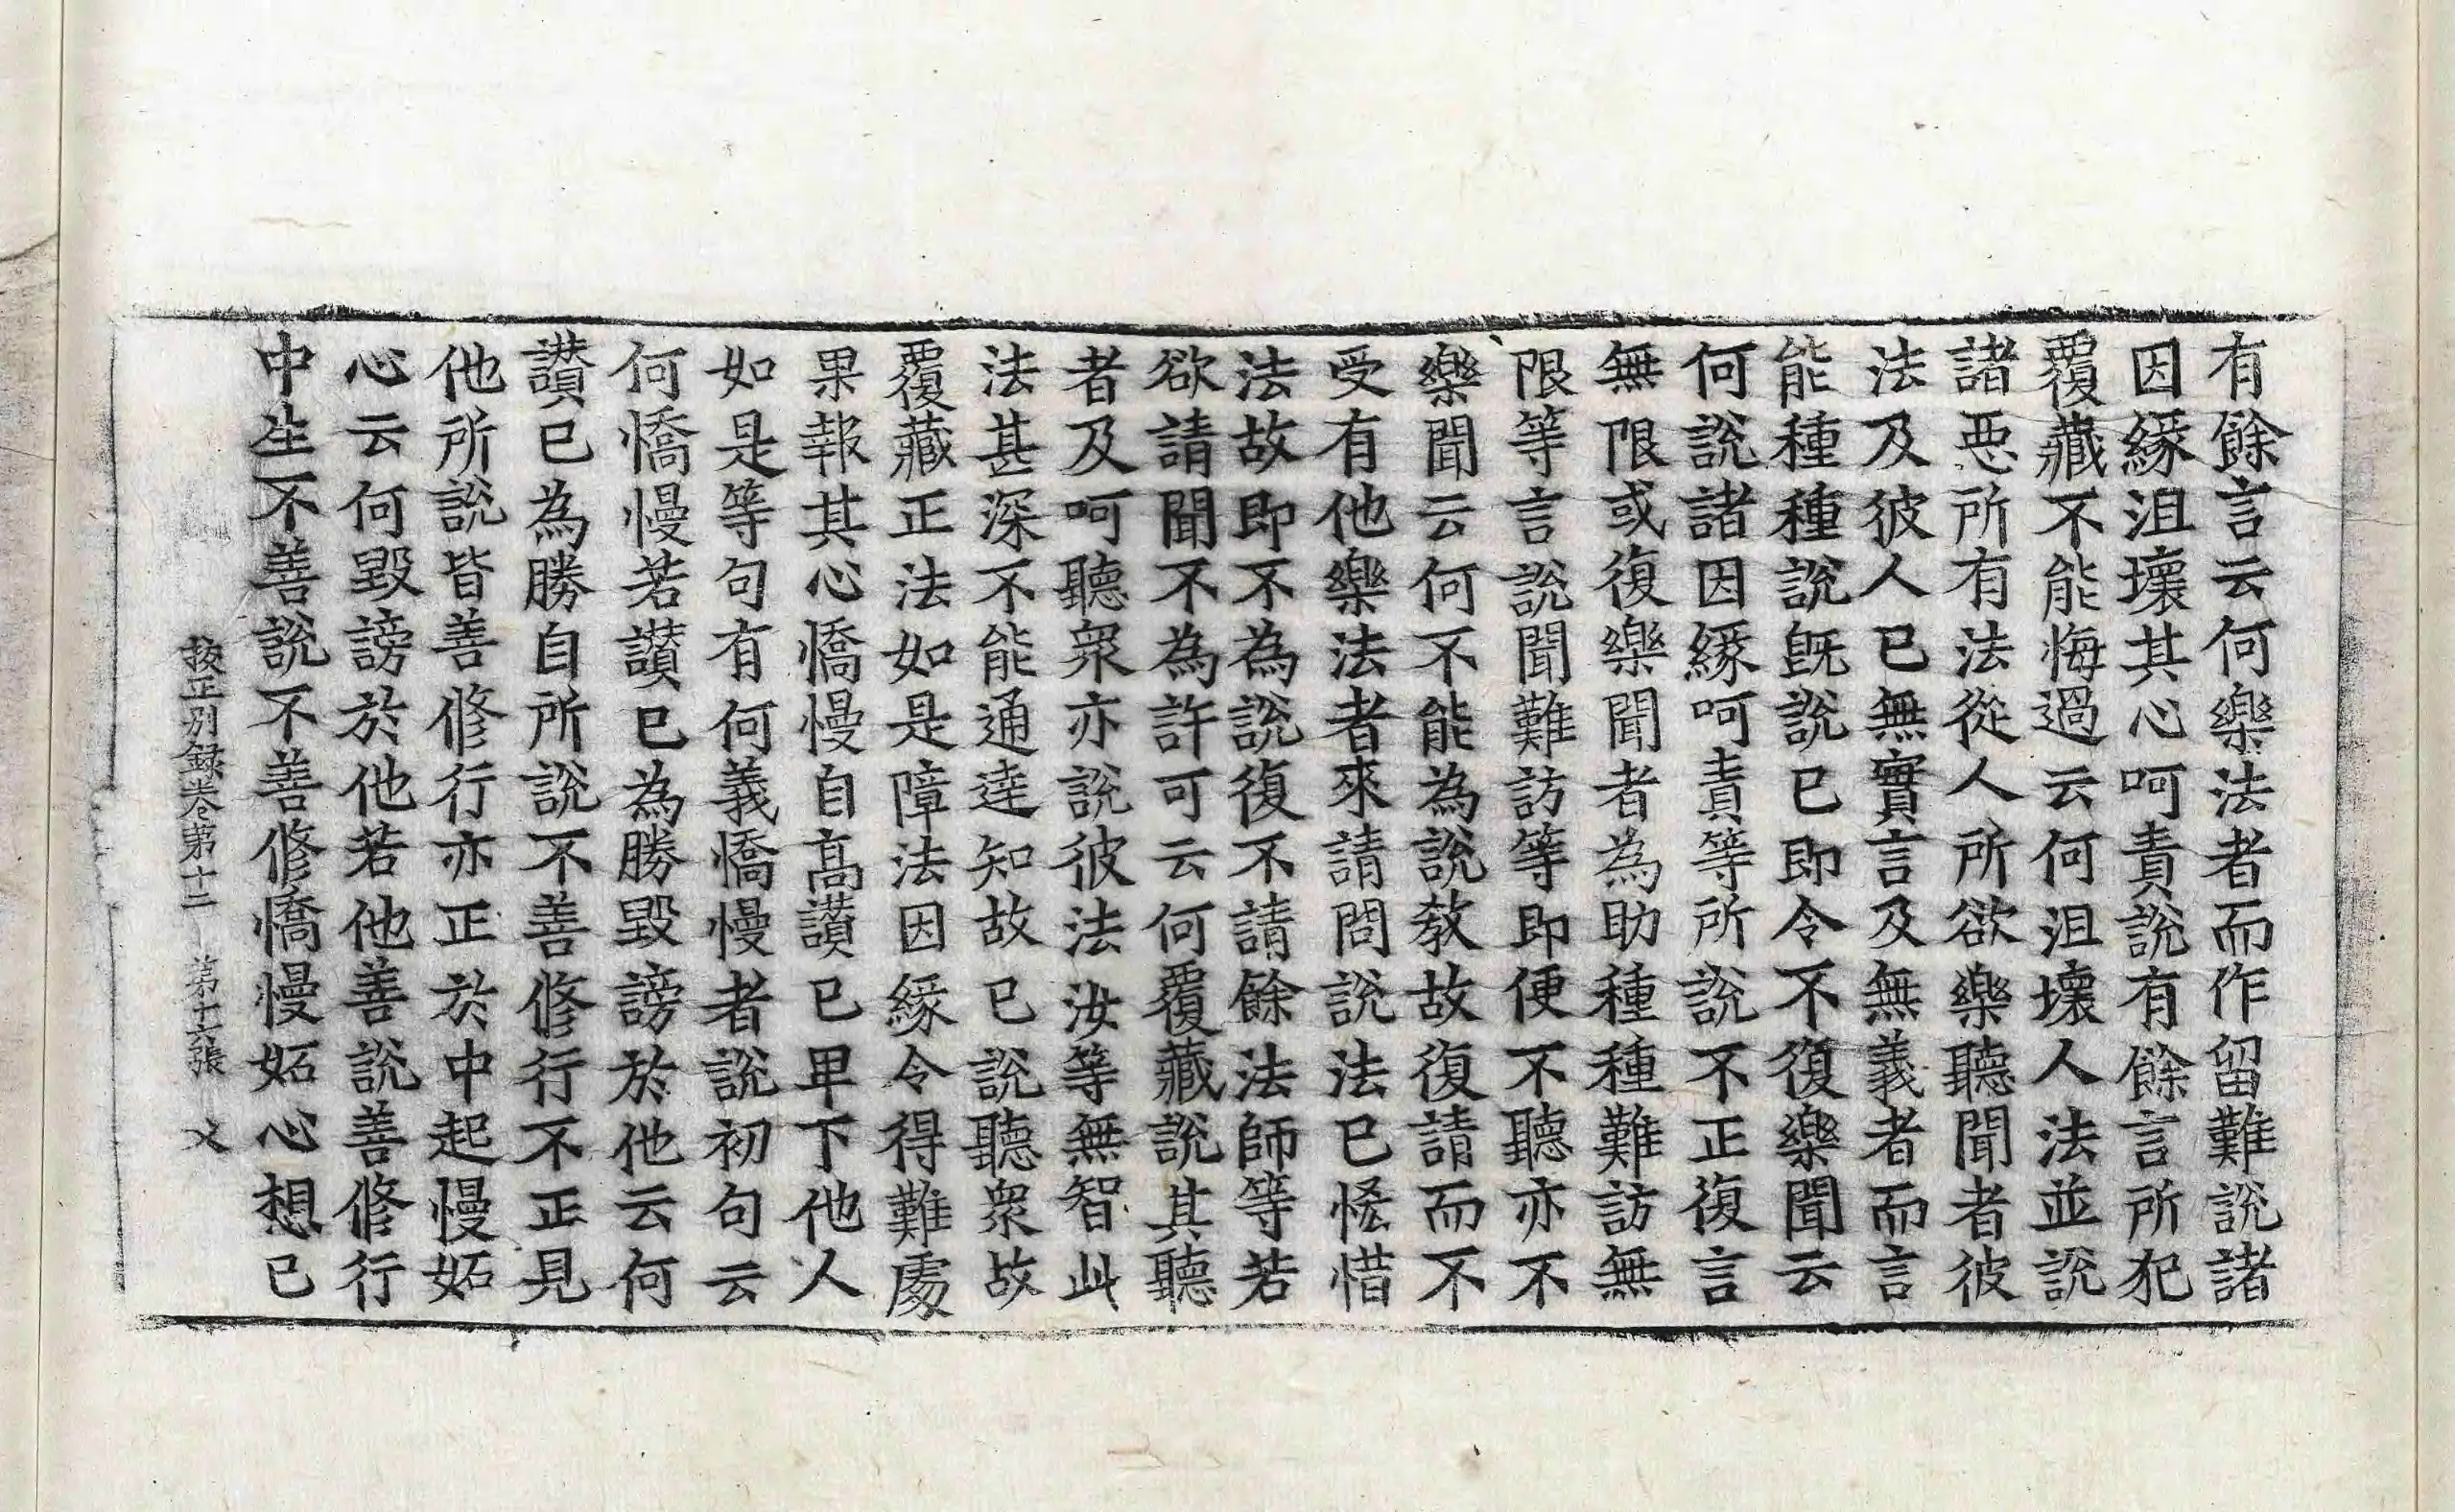 有餘言云何樂法者而作留難說諸
因緣沮壞其心呵責說有餘言所犯
覆藏不能悔過云何沮壞人法並說
諸惡所有法從人所欲樂聽聞者彼
法及彼人已無實言及無義者而言
能種種說旣說已即令不復樂聞云
何說諸因緣呵責等所說不正復言
無限或復樂聞者為助種種難訪無
限等言說聞難訪等即便不聽亦不
樂聞云何不能為說教故復請而不
受有他樂法者來請問說法已恡惜
法故即不為說復不請餘法師等若
欲請聞不為許可云何覆藏說其聽
者及呵聽衆亦說彼法汝等無智此
法甚深不能通達知故已說聽衆故
覆藏正法如是障法因緣令得難處
果報其心憍慢自髙讃已卑下他人
如是等句有何義憍慢者說初句云
何憍慢若讃已為勝毀謗於他云何
讃已為勝自所說不善修行不正見
他所說皆善修行亦正於中起慢妬
心云何毀謗於他若他善說善修行
中生不善說不善修憍慢妬心想已
挍正別録卷第十二 第十六張